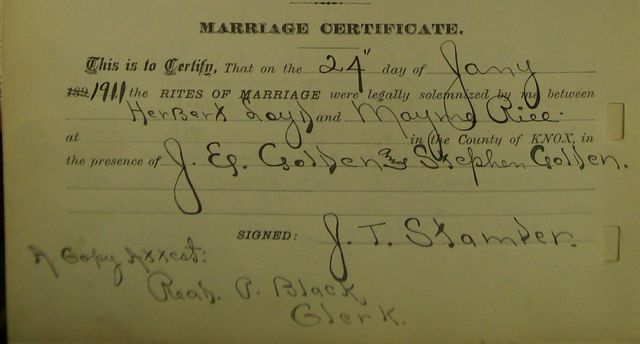 MARRIAGE CERTIFICATE.
This is to Certify, That on the 24" day of Jany
189 1911 the RITES OF MARRIAGE were legally solemnized by me between
Herbert and Mayme Rice.
at in the County of KNOX, in
the presence of J. E. Golden and Stephen Golden.
SIGNED: J. T. Stamper.
A Copy Attest:
Read. P. Black,
Clerk.